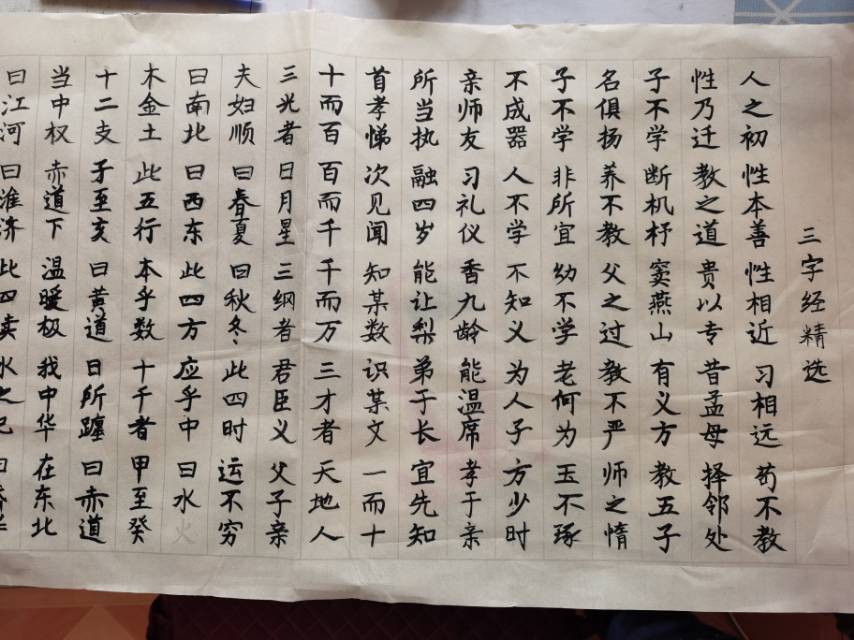 三字经精选
人之初 性本善 性相近 习相远 苟不教
性乃迁 教之道 贵以专 昔孟母 择邻处
子不学 断机杼 窦燕山 有义方 教五子
名俱扬 养不教 父之过 教不严 师之惰
子不学 非所宜 幼不学 老何为 玉不琢
不成器 人不学 不知义 为人子 方少时
亲师友 习礼仪 香九龄 能温席 孝于亲
所当执 融四岁 能让梨 弟于长 宜先知
首孝悌 次见闻 知某数 识某文 一而十
十而百 百而千 千而万 三才者 天地人
三光者 日月星 三纲者 君臣义 父子亲
夫妇顺 曰春夏 曰秋冬 此四时 运不穷
曰南北 曰西东 此四方 应乎中 曰水火
木金土 此五行 本乎数 十干者 甲至癸
十二支 子至亥 曰黄道 日所躔 曰赤道
当中权 赤道下 温暖极 我中华 在东北
曰江河 曰淮济 此四渎 水之纪